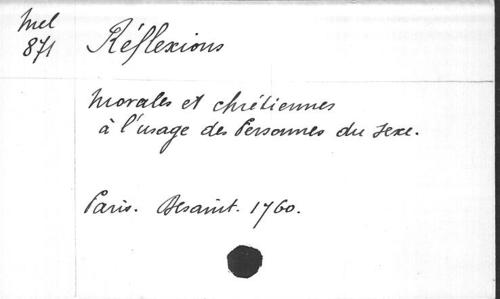 Mel
871
Réflexions
Morales et chrétiennes
à l'usage des Personnes du sexe.
Paris. Desaint. 1760.